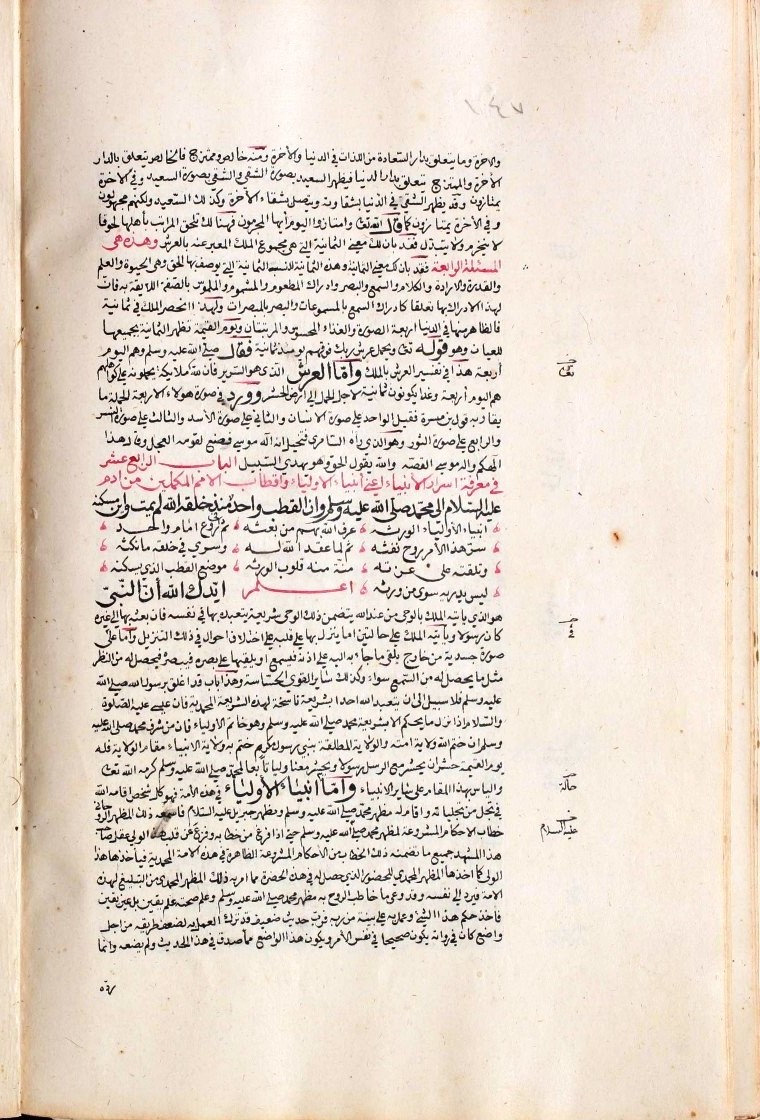 ١٤٧
والآخرة وما يتعلق بدار السعادة من اللذات في الدنيا والآخرة ومنه خالص وممتزج فالخالص يتعلق بالدار
الآخرة والممتزج يتعلق بدار الدنيا فيظهر السعيد بصورة الشقي والشقي بصورة السعيد وفي الآخرة
يمتازون وقد يظهر الشقي في الدنيا بشقاوته ويتصل بشقاء الآخرة وكذلك السعيد ولكنهم مجهولون
وفي الآخرة يمتازون كما قال الله تعالى وامتازوا اليوم أيها المجرمون فهنالك تلحق المراتب بأهلها لحوقا
لا ينخرم ولا يتبدل فقد بان لك معنى الثمانية التي هي مجموع الملك المعبر عنه بالعرش وهذه هي
المسئلة الرابعة فقد بان لك معنى الثمانية وهذه الثمانية للنسب الثمانية التي يوصف بها الحق وهي الحيوة والعلم
والقدرة والارادة والكلام والسمع والبصر وادراك المطعوم والمشموم والملموس بالصفة اللايقة به فان
لهذا الادراك بها تعلقا كادراك السمع بالمسموعات والبصر بالمبصرات ولهذا انحصر الملك في ثمانية
فالظاهر منها في الدنيا اربعة الصورة والغذاء المحسوس والمرتبتان ويوم القيمة تظهر الثمانية بجميعها
للعيان وهو قوله تعالى ويحمل عرش ربك فوقهم يومئذ ثمانية فقال صلى الله عليه وسلم وهم اليوم
أربعة هذا في تفسير العرش بالملك وأما العرش الذي هو السرير فان لله ملائكة يحملونه على كواهلهم
هم اليوم أربعة وغدا يكونون ثمانية لاجل الحمل إلى أرض الحشر وورد في صورة هؤلاء الأربعة الحملة ما
يقاربه قول بن مسرة فقيل الواحد على صورة الانسان والثاني على صورة الأسد والثالث على صورة النسر
والرابع على صورة الثور وهو الذي رآه السامري فتخيل انه اله موسى فصنع لقومه العجل وقال هذا
الهكم واله موسى القصة والله يقول الحق وهو يهدى السبيل الباب الرابع عشر
في معرفة اسرار الأنبياء اعني أنبياء الاولياء واقطاب الامم المكملين من ادم
عليه السلام إلى محمد صلى الله عليه وسلم وان القطب واحد منذ خلقه الله لم يمت واين مسكنه
أنبياء الأولياء الورثه عرف الله بهم من بعثه ثم في روع امام واحد
سر هذا الأمر روح نفثه ثم لما عقد الله له وسرى في خلقه ما نكثه
وتلقته على عزته منة منه قلوب الورثه موضع القطب الذي يسكنه
ليس يدريه سوى من ورثه اعلم ايدك الله أن النبي
هو الذي يأتيه الملك بالوحي من عند الله يتضمن ذلك الوحي شريعة يتعبده بها في نفسه فان بعثه بها إلى غيره
كان رسولا ويأتيه الملك على حالتين اما ينزل بها على قلبه على اختلاف احوال في ذلك التنزيل وأما على
صورة جسدية من خارج يلقي ما جاء به اليه على اذنه فيسمع او يلقيها على بصره فيبصره فيحصل له من النظر
مثل ما يحصل له من السمع سواء وكذلك سائر القوى الحساسة وهذا باب قد اغلق برسول الله صلى الله
عليه وسلم فلا سبيل إلى ان يتعبد الله احدا بشريعة ناسخة لهذه الشريعة المحمدية فان عيسى عليه الصلوة
والسلام إذا نزل ما يحكم الا بشريعة محمد صلى الله عليه وسلم وهو خاتم الأولياء فان من شرف محمد صلى الله عليه
وسلم ان ختم الله ولاية امته والولاية المطلقة بنبي رسول كريم ختم به ولاية الانبياء مقام الولاية فله
يوم القيمة حشران يحشر مع الرسل رسولا ويحشر معنا وليا تابعا لمحمد صلى الله عليه وسلم كرمه الله تعالى
والياس بهذا المقام على سائر الانبياء وأما أنبياء الأولياء في هذه الأمة فهو كل شخص اقامه الله
في تجل من تجلياته واقام له مظهر محمد صلى الله عليه وسلم ومظهر جبريل عليه السلام فاسمعه ذلك المظهر الروحاني
خطاب الاحكام المشروعة لمظهر محمد صلى الله عليه وسلم حتى إذا فرغ من خطابه وفزع عن قلب هذا الولي عقل صاحب
هذا المشهد جميع ما تضمنه ذلك الخطاب من الأحكام المشروعة الظاهرة في هذه الامة المحمدية فيأخذها هذا
الولي كما اخذها المظهر المحمدي للحضور الذي حصل له في هذه الحضرة مما امر به ذلك المظهر المحمدي من التبليغ لهذه
الامة فيرد إلى نفسه وقد وعى ما خاطب الروح به مظهر محمد صلى الله عليه وسلم وعلم صحته علم يقين بل عين يقين
فاخذ حكم هذا النبي وعمل به على بينة من ربه فرب حديث ضعيف قد ترك العمل به لضعف طريقه من اجل
واضع كان في رواته يكون صحيحا في نفس الأمر ويكون هذا الواضع مما صدق في هذا الحديث ولم يضعه وانما
تعالى
حالة
عليه السلام